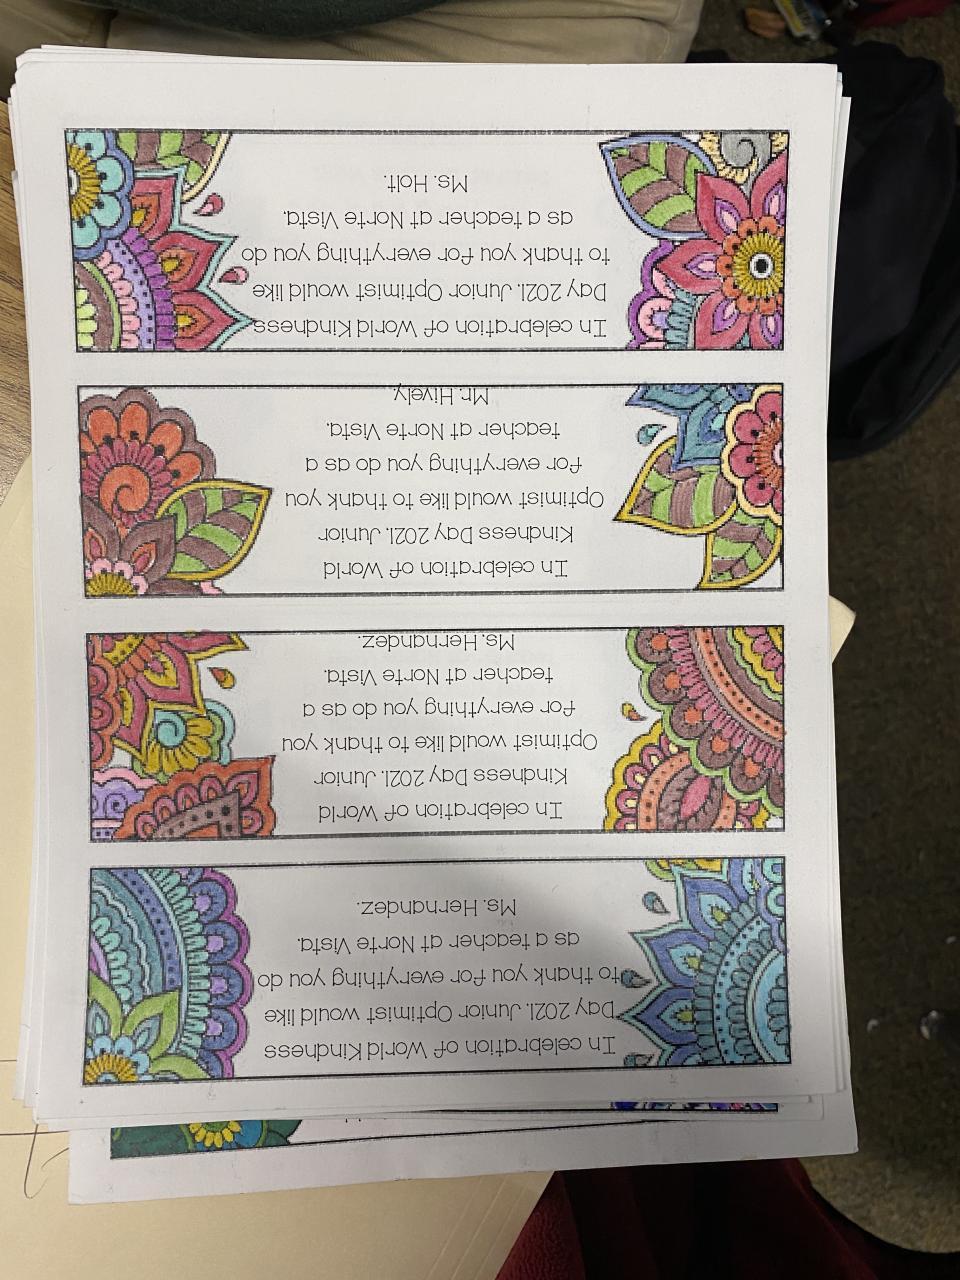 In celebration of World Kindness
Day 2021, Junior Optimist would like
to thank you for everything you do
as a teacher at Norte Vista,
Ms. Hernandez.
In celebration of World
Kindness Day 2021, Junior
Optimist would like to thank you
for everything you do as a
teacher at Norte Vista,
Ms. Hernandez.
In celebration of World
Kindness Day 2021, Junior
Optimist would like to thank you
for everything you do as a
teacher at Norte Vista,
Mr. Hively.
In celebration of World Kindness
Day 2021, Junior Optimist would like
to thank you for everything you do
as a teacher at Norte Vista,
Ms. Holt.